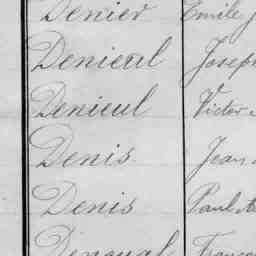 Denier Emile
Denieul Joseph
Denieul Victor
Denis Jean
Denis Paul
Denoual